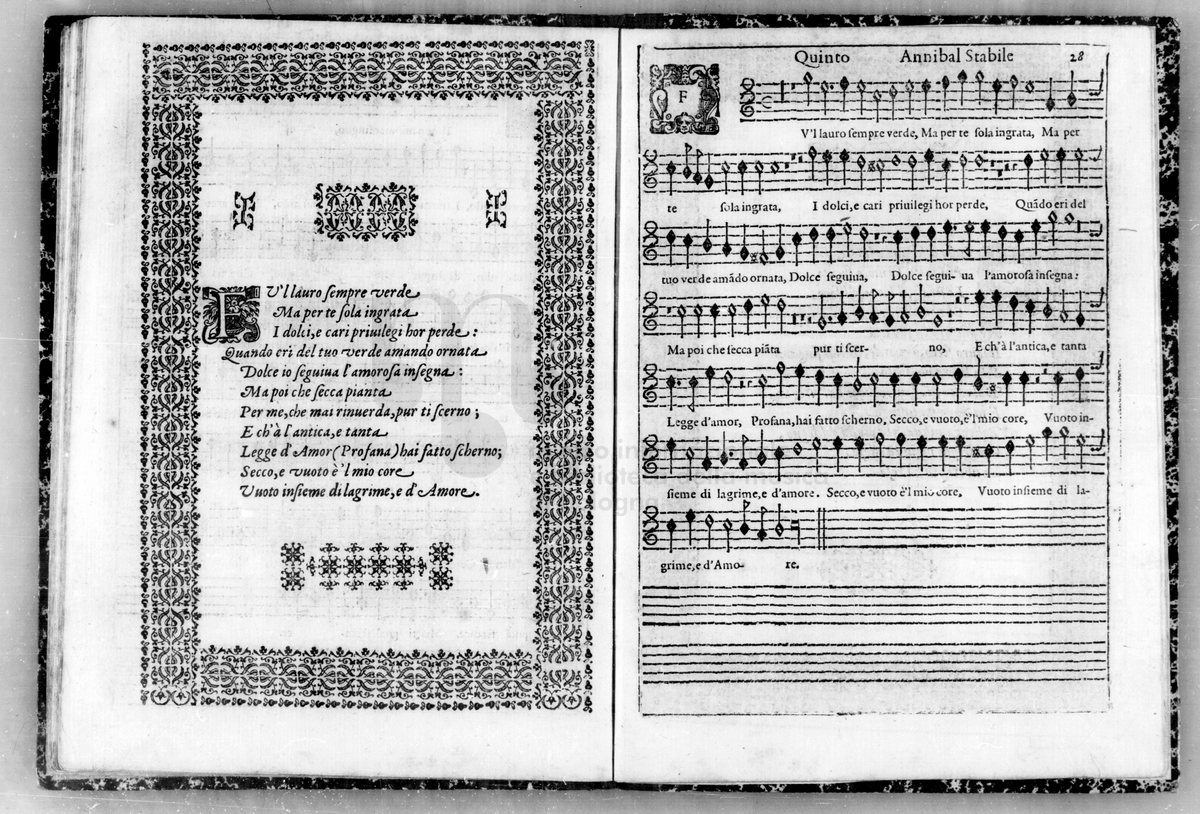 FV'l lauro ſempre verde
Ma per te ſola ingrata
I dolci, e cari priuilegi hor perde :
Quando eri del tuo verde amando ornata
Dolce io ſeguiua l'amoroſa inſegna :
Ma poi che ſecca pianta
Per me, che mai rinuerda, pur ti ſcerno ;
E ch'à l'antica, e tanta
Legge d'Amor (Profana) hai fatto ſcherno;
Secco, e vuoto è 'l mio core
Vuoto inſieme di lagrime, e d'Amore.
Quinto Annibal Stabile 28
F
V'l lauro ſempre verde, Ma per te ſola ingrata, Ma per
te ſola ingrata, I dolci, e cari priuilegi hor perde, Quãdo eri del
tuo verde amãdo ornata, Dolce ſeguiua, Dolce ſegui- ua l'amoroſa inſegna:
Ma poi che ſecca piãta pur ti ſcer- no, E ch'à l'antica, e tanta
Legge d'amor, Profana, hai fatto ſcherno, Secco, e vuoto, è'l mio core, Vuoto in-
ſieme di lagrime, e d'amore. Secco, e vuoto è'l mio core, Vuoto inſieme di la-
grime, e d'Amo- re.